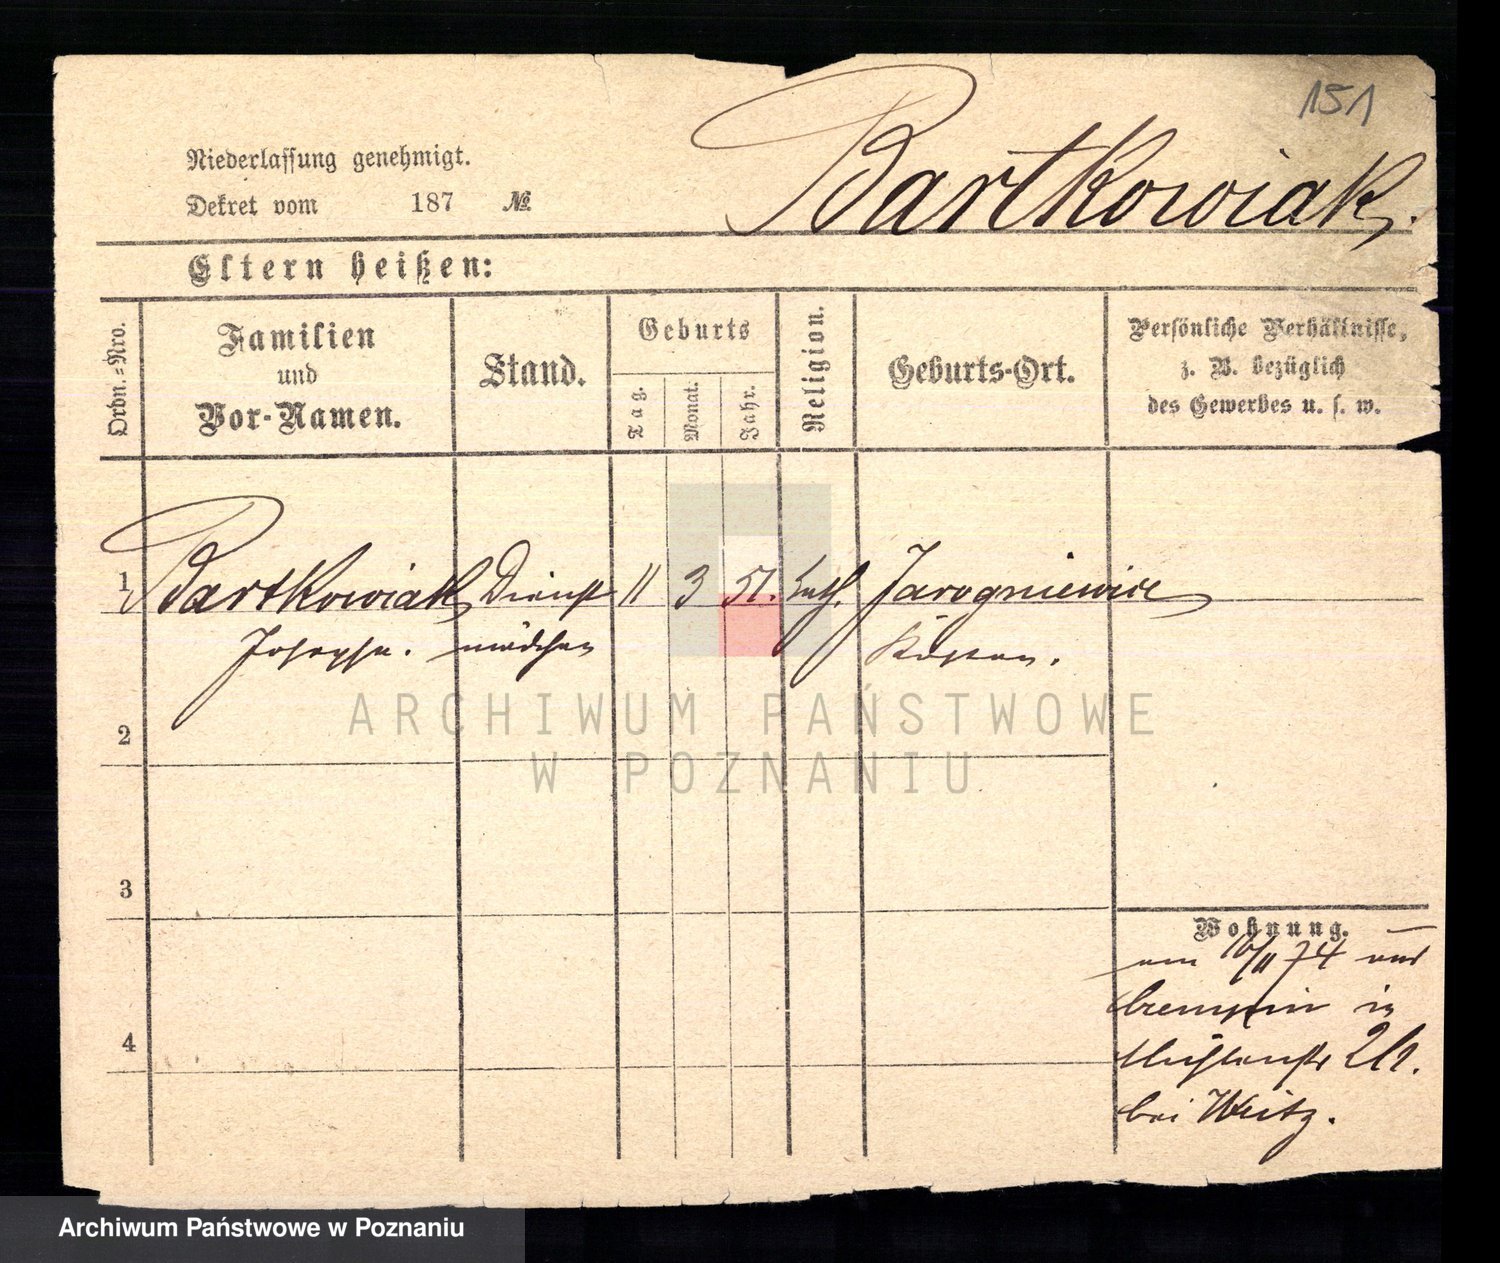 151
Bartkowiak.
Niederlassung genehmigt.
Dekret vom 187 №
Eltern heißen:
Ordn.-Nro.
Familien
und
Vor-Namen.
Stand.
Geburts
Tag.
Monat.
Jahr.
Religion.
Geburts-Ort.
Persönliche Verhältnisse,
z. B. bezüglich
des Gewerbes u. s. w.
1 Bartkowiak Dienst 11 3 51. kath. Jarogniewice
Josepha. mädchen Kosten.
2
3
4
Wohnung.
am 10/11 74 aus
Czempin in
Mühlenstr
bei Weitz.
ARCHIWUM PAŃSTWOWE
W POZNANIU
Archiwum Państwowe w Poznaniu